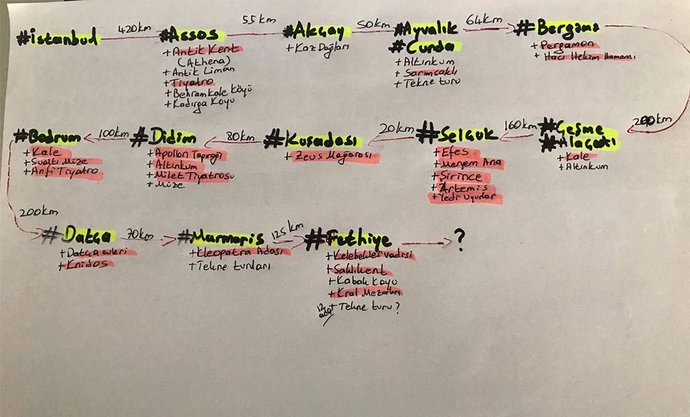 #istanbul
420km
#Assos
+Antik Kent
(Athena)
+Antik Liman
+Tiyatro
+Behramkale Köyü
+Kadırga Koyu
55km
#Akçay
+Kazdağları
50km
#Ayvalık
#Cunda
+Altınkum
+Sarımsaklı
+Tekne turu
64km
#Bergama
+Pergamon
+Hacı Hekim Hamamı
200km
#Çeşme
#Alaçatı
+Kale
+Altınkum
160km
#Selçuk
+Efes
+Meryem Ana
+Şirince
+Artemis
+Yedi Uyurlar
20km
#Kuşadası
+Zeus Mağarası
80km
#Didim
+Apollon Tapınağı
+Altınkum
+Milet Tiyatrosu
+Müze
100km
#Bodrum
+Kale
+Sualtı Müze
+Anfi Tiyatro
200km
#Datça
+Datça evleri
+Knidos
70km
#Marmaris
+Kleopatra Adası
+Tekne turları
125km
#Fethiye
+Kelebekler vadisi
+Saklıkent
+Kabak Koyu
+Kral Mezarları
+Tekne turu?
?